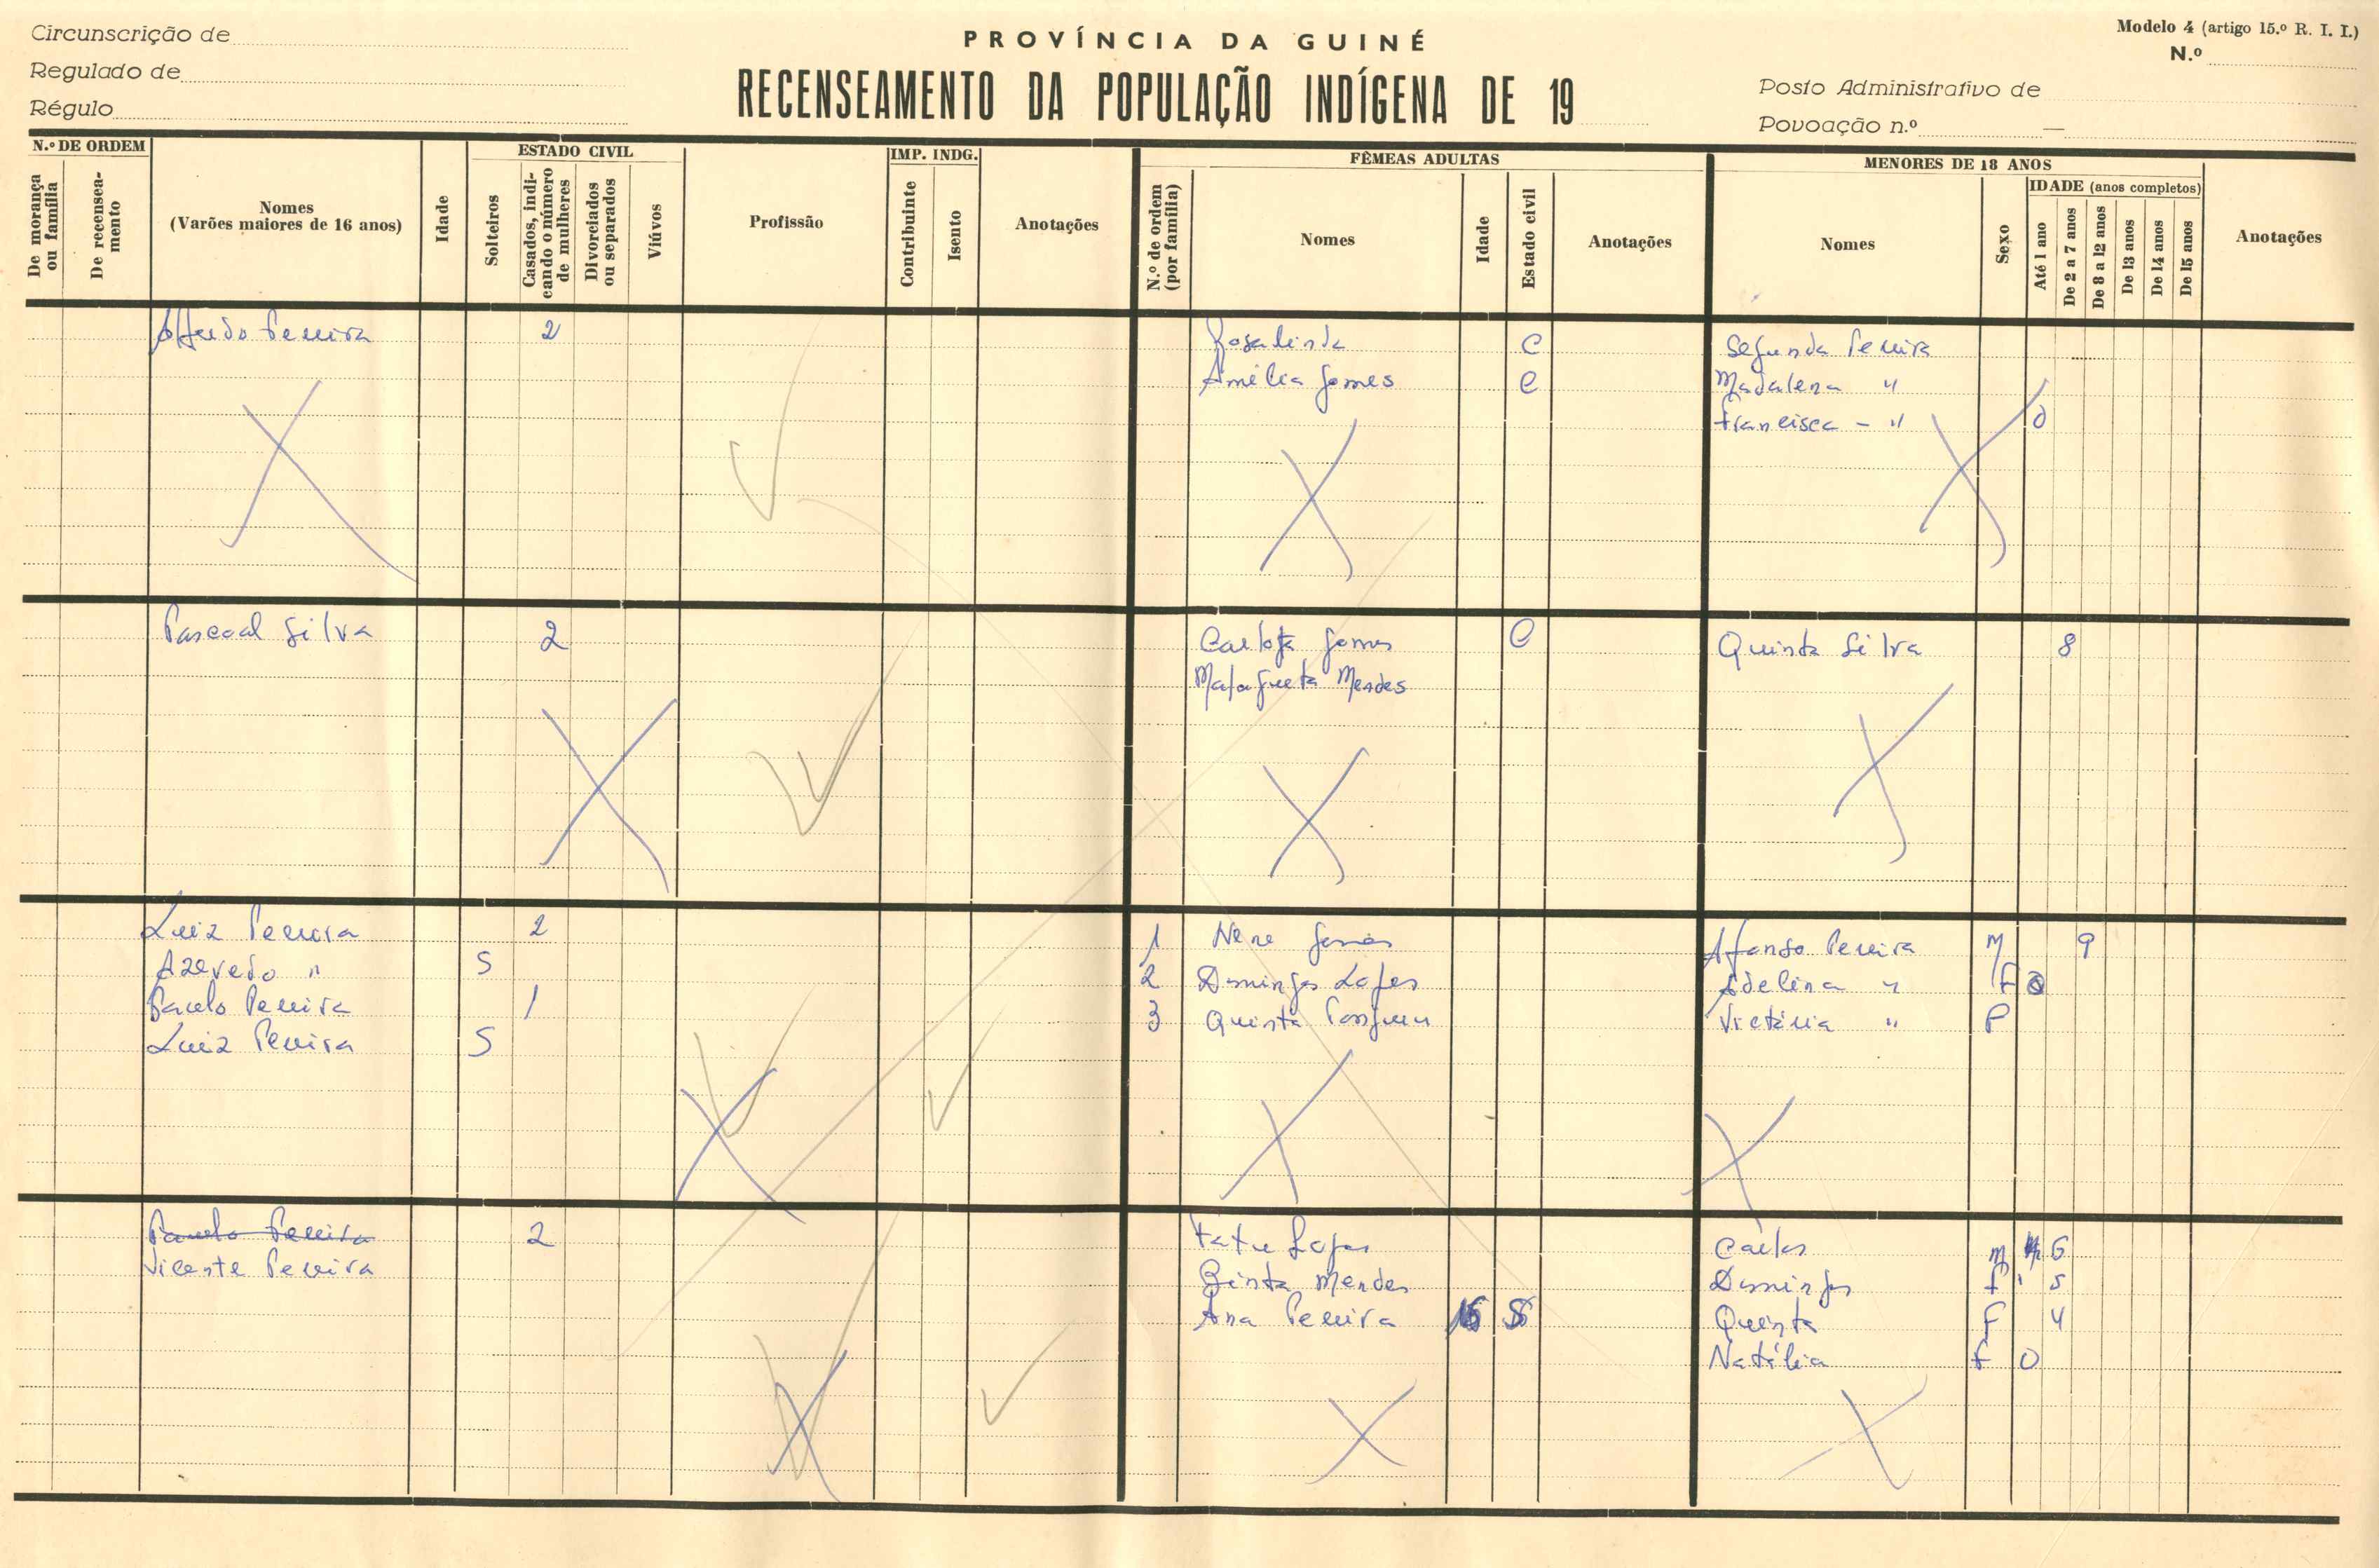 Circunscrição de
Regulado de
Régulo
PROVÍNCIA DA GUINÉ
RECENSEAMENTO DA POPULAÇÃO INDÍGENA DE 19
Modelo 4 (artigo 15.º R. I. I.)
N.º
Posto Administrativo de
Povoação n.º —
N.º DE ORDEM
De morança ou família
De recenseamento
Nomes
(Varões maiores de 16 anos)
Idade
ESTADO CIVIL
Solteiros
Casados, indicando o número de mulheres
Divorciados ou separados
Viúvos
Profissão
IMP. INDG.
Contribuinte
Isento
Anotações
FÊMEAS ADULTAS
N.º de ordem (por família)
Nomes
Idade
Estado civil
Anotações
MENORES DE 18 ANOS
Nomes
Sexo
IDADE (anos completos)
Até 1 ano
De 2 a 7 anos
De 8 a 12 anos
De 13 anos
De 14 anos
De 15 anos
Anotações
Alfredo Pereira 2 Rosalinda C Segunda Pereira
Amélia Gomes C Madalena "
Francisca - " 0
Pascoal Silva 2 Carlota Gomes C Quinta Silva 8
Malagueta Mendes
Luiz Pereira 2 1 Nene Gomes Afonso Pereira M 9
Azevedo " S 2 Domingas Lopes Adelina " F 0
Paulo Pereira 1 3 Quinta Victória " F
Luiz Pereira S
Paulo Pereira 2 Lopes Carlos M 6
Vicente Pereira Binta Mendes Domingas F 5
Ana Pereira 16 S Quinta F 4
Natália F 0